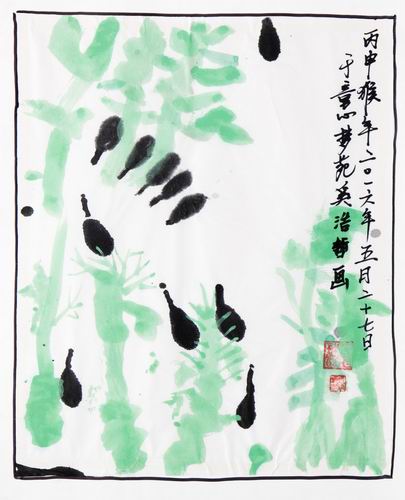 丙申猴年二〇一六年五月二十七日
于童心梦苑奚浩哲画